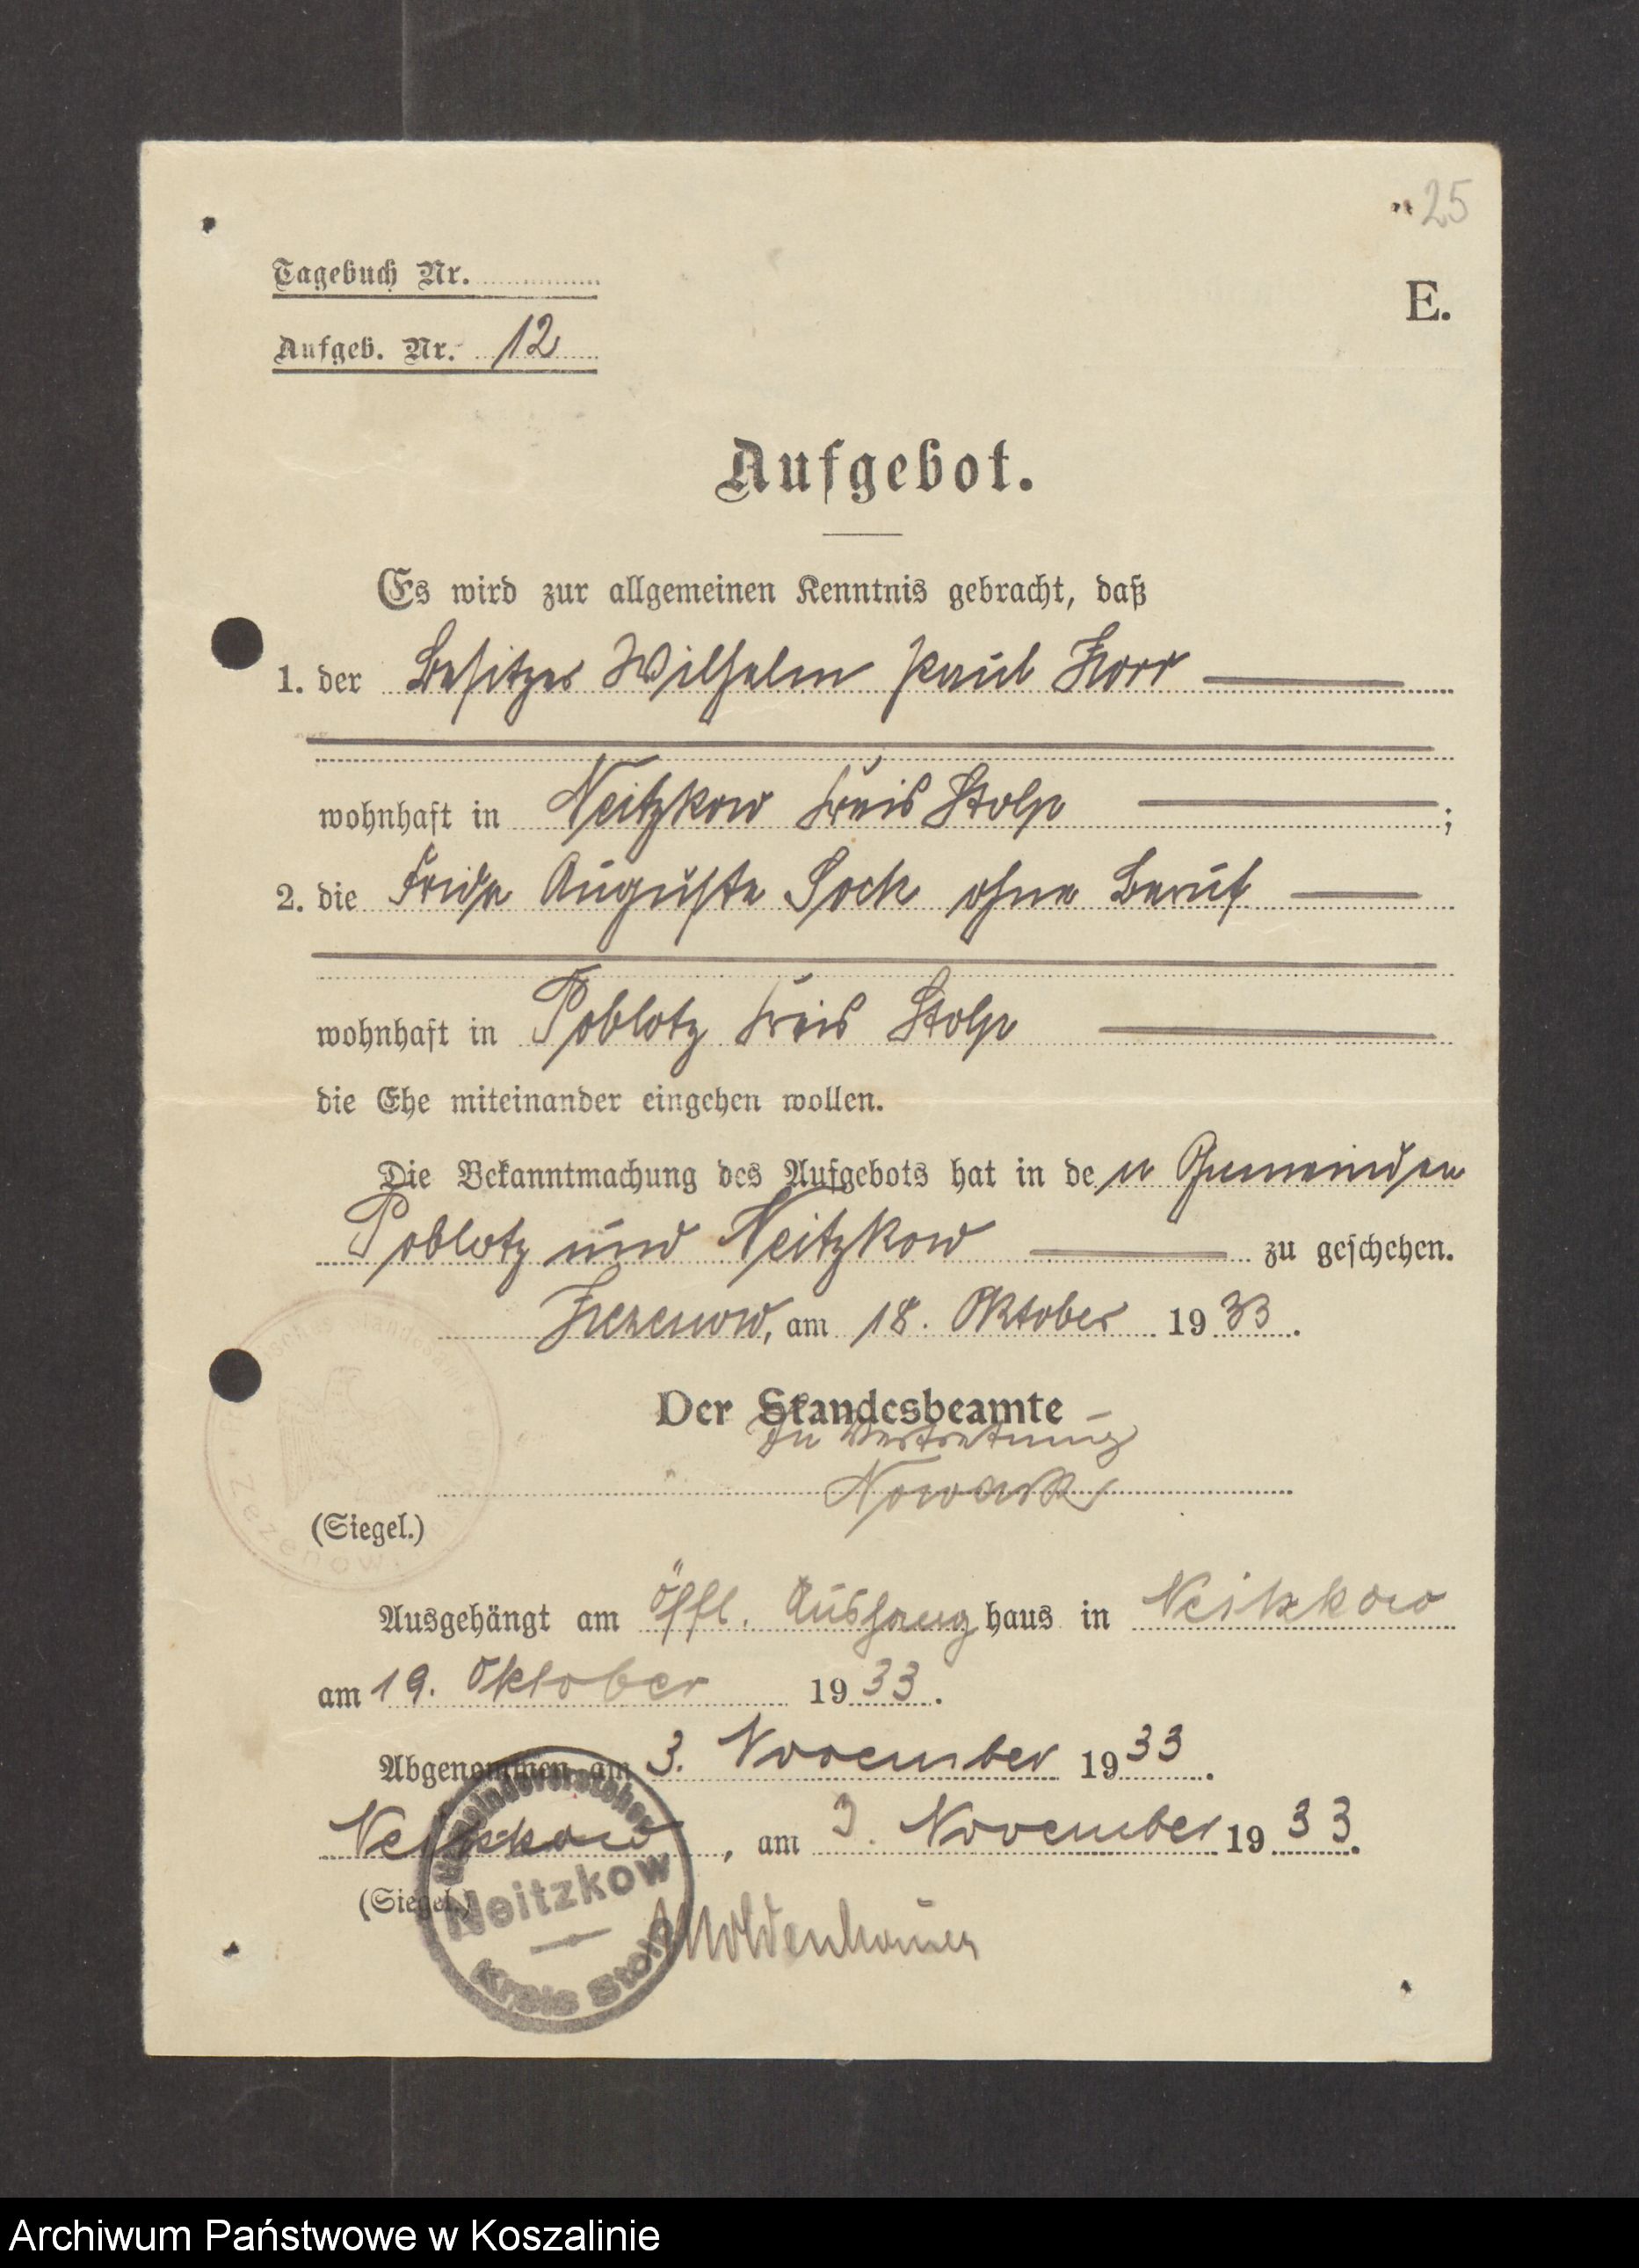 25
Tagebuch Nr.
E.
Aufgeb. Nr. 12
Aufgebot.
Es wird zur allgemeinen Kenntnis gebracht, daß
1. der Besitzer Wilhelm Paul
wohnhaft in Neitzkow Kreis Stolp ;
2. die Frida Auguste Sock ohne Beruf
wohnhaft in Poblotz Kreis Stolp
die Ehe miteinander eingehen wollen.
Die Bekanntmachung des Aufgebots hat in de n Gemeinden
Poblotz und Neitzkow zu geschehen.
Zezenow, am 18. Oktober 1933.
Der Standesbeamte
In Vertretung
Nowak
(Siegel.)
Zezenow.
Ausgehängt am öffl. Aushang haus in Neitzkow
am 19. Oktober 1933.
Abgenommen am 3. November 1933.
Neitzkow, am 3. November 1933.
(Siegel.)
Gemeindevorsteher
Neitzkow
Kreis Stolp
Moldenhauer
Archiwum Państwowe w Koszalinie